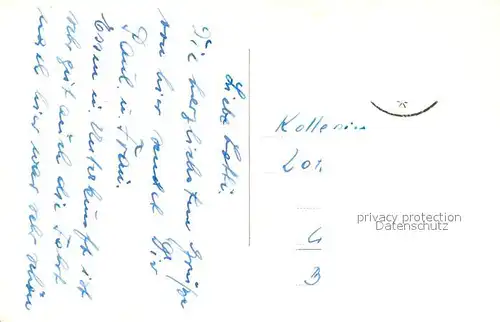 Liebe Lotti.
Die herzlichsten Grüße
von hier sendet Dir
Paul u. Frau.
Essen u. Unterkunft ist
sehr gut auch die Fahrt
nach hier war sehr schön
Kollegin
Lot
privacy protection
Datenschutz